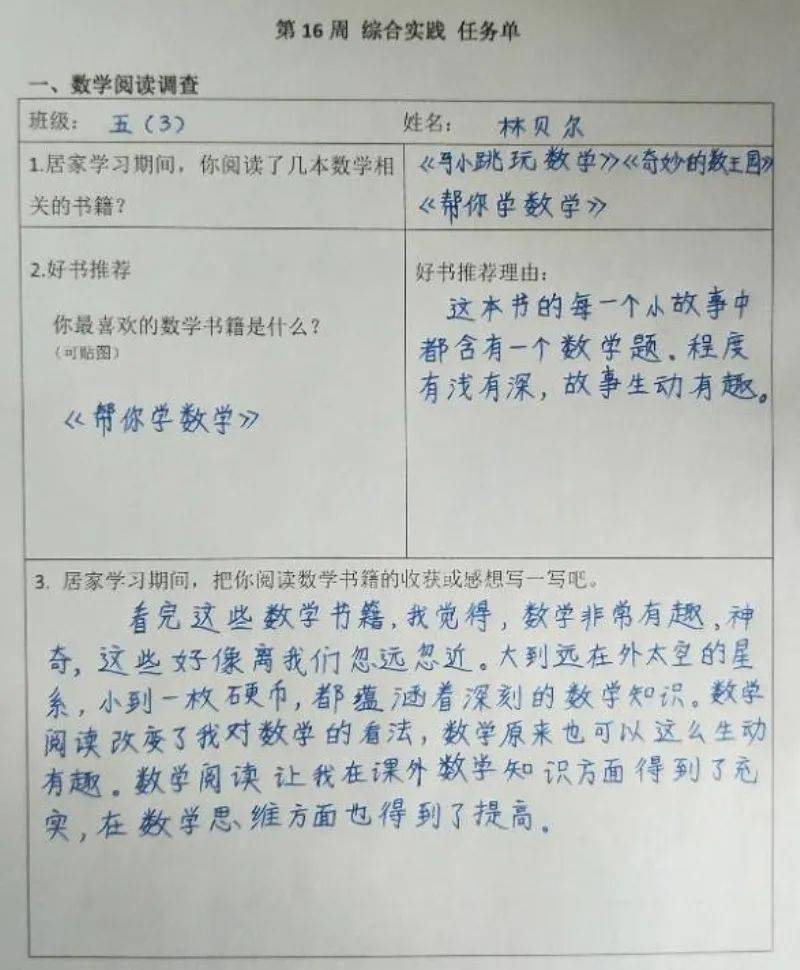 第 16 周 综合实践 任务单
一、数学阅读调查
班级: 五(3) 姓名: 林贝尔
1.居家学习期间,你阅读了几本数学相
关的书籍?
《马小跳玩数学》《奇妙的数王国》
《帮你学数学》
2.好书推荐
你最喜欢的数学书籍是什么?
(可贴图)
《帮你学数学》
好书推荐理由:
这本书的每一个小故事中
都含有一个数学题。程度
有浅有深,故事生动有趣。
3. 居家学习期间,把你阅读数学书籍的收获或感想写一写吧。
看完这些数学书籍,我觉得,数学非常有趣、神
奇,这些好像离我们忽远忽近。大到远在外太空的星
系,小到一枚硬币,都蕴涵着深刻的数学知识。数学
阅读改变了我对数学的看法,数学原来也可以这么生动
有趣。数学阅读让我在课外数学知识方面得到了充
实,在数学思维方面也得到了提高。